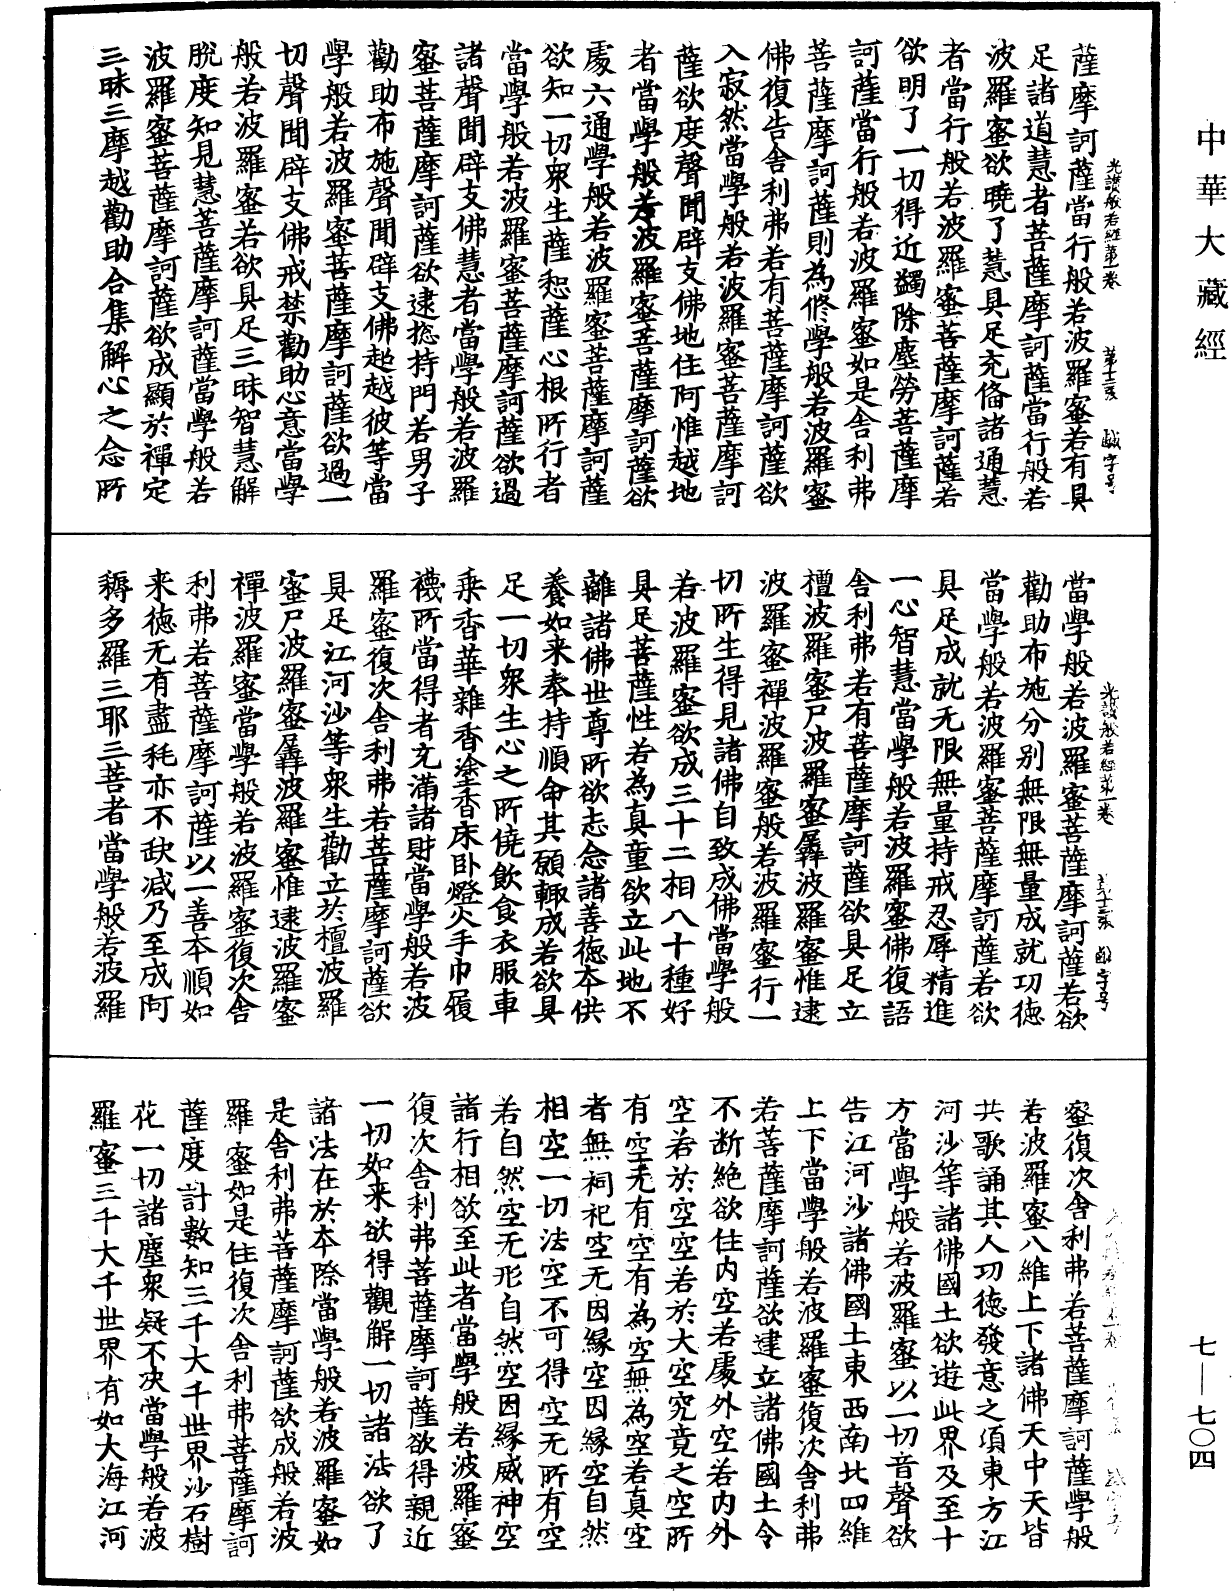 中華大藏經
薩摩訶薩當行般若波羅蜜若有具
足諸道慧者菩薩摩訶薩當行般若
波羅蜜欲曉了慧具足充俻諸通慧
者當行般若波羅蜜菩薩摩訶薩若
欲明了一切得近蠲除塵勞菩薩摩
訶薩當行般若波羅蜜如是舍利弗
菩薩摩訶薩則為修學般若波羅蜜
佛復告舍利弗若有菩薩摩訶薩欲
入寂然當學般若波羅蜜菩薩摩訶
薩欲度聲聞辟支佛地住阿惟越地
者當學般若波羅蜜菩薩摩訶薩欲
處六通學般若波羅蜜菩薩摩訶薩
欲知一切衆生薩惒薩心根所行者
當學般若波羅蜜菩薩摩訶薩欲過
諸聲聞辟支佛慧者當學般若波羅
蜜菩薩摩訶薩欲逮揔持門若男子
勸助布施聲聞辟支佛超越彼等當
學般若波羅蜜菩薩摩訶薩欲過一
切聲聞辟支佛戒禁勸助心意當學
般若波羅蜜若欲具足三昧智慧解
脫度知見慧菩薩摩訶薩當學般若
波羅蜜菩薩摩訶薩欲成顯於禪定
三昧三摩越勸助合集解心之念所
光讚般若經第一卷
當學般若波羅蜜菩薩摩訶薩若欲
勸助布施分别無限無量成就功德
當學般若波羅蜜菩薩摩訶薩若欲
具足成就无限無量持戒忍辱精進
一心智慧當學般若波羅蜜佛復語
舍利弗若有菩薩摩訶薩欲具足立
檀波羅蜜尸波羅蜜羼波羅蜜惟逮
波羅蜜禪波羅蜜般若波羅蜜行一
切所生得見諸佛自致成佛當學般
若波羅蜜欲成三十二相八十種好
具足菩薩性若為真童欲立此地不
離諸佛世尊所欲志念諸善德本供
養如来奉持順命其願輙成若欲具
足一切衆生心之所僥飲食衣服車
乗香華雜香塗香床卧燈火手巾履
襪所當得者充滿諸財當學般若波
羅蜜復次舍利弗若菩薩摩訶薩欲
具足江河沙等衆生勸立於檀波羅
蜜尸波羅蜜羼波羅蜜惟逮波羅蜜
禪波羅蜜當學般若波羅蜜復次舍
利弗若菩薩摩訶薩以一善本順如
来德无有盡秏亦不缺减乃至成阿
耨多羅三耶三菩者當學般若波羅
光讚般若經第一卷
蜜復次舍利弗若菩薩摩訶薩學般
若波羅蜜八維上下諸佛天中天皆
共歌誦其人功德發意之頃東方江
河沙等諸佛國土欲遊此界及至十
方當學般若波羅蜜以一切音聲欲
告江河沙諸佛國土東西南北四維
上下當學般若波羅蜜復次舍利弗
若菩薩摩訶薩欲建立諸佛國土令
不断絶欲住内空若處外空若内外
空若於空空若於大空究竟之空所
有空无有空有為空無為空若真空
者無祠祀空无因緣空因緣空自然
相空一切法空不可得空无所有空
若自然空无形自然空因緣威神空
諸行相欲至此者當學般若波羅蜜
復次舍利弗菩薩摩訶薩欲得親近
一切如来欲得觀解一切諸法欲了
諸法在於本際當學般若波羅蜜如
是舍利弗菩薩摩訶薩欲成般若波
羅蜜如是住復次舍利弗菩薩摩訶
薩度計數知三千大千世界沙石樹
花一切諸塵衆疑不决當學般若波
羅蜜三千大千世界有如大海江河
七—七〇四